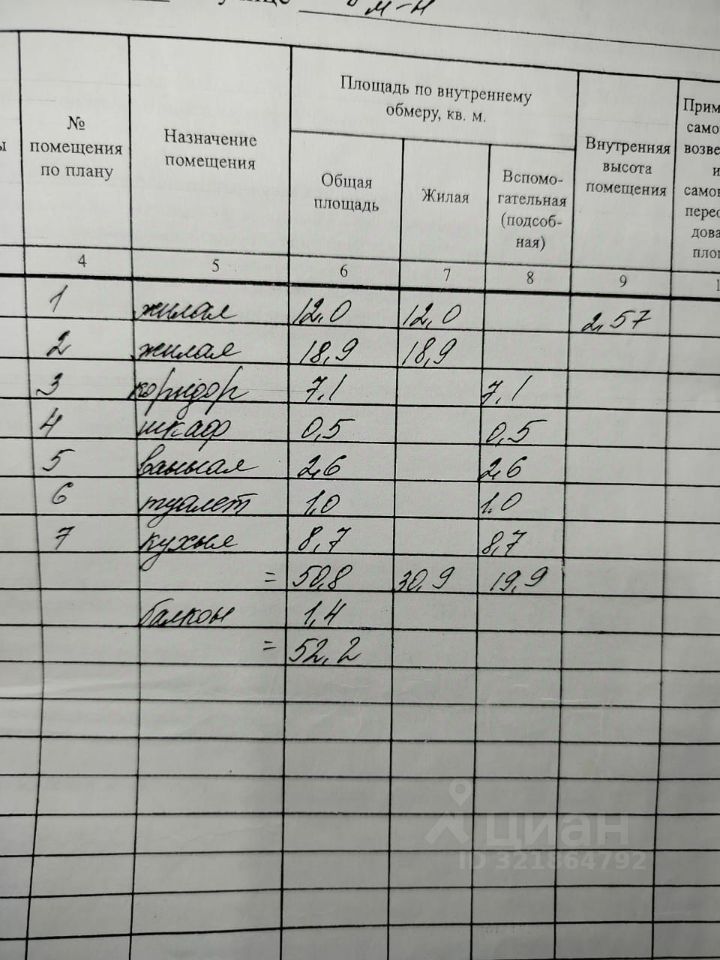 м-н
Площадь по внутреннему
обмеру, кв. м.
№
помещения
по плану
Назначение
помещения
Общая
площадь
Жилая
Вспомо-
гательная
(подсоб-
ная)
Внутренняя
высота
помещения
Прим
само
возве
и
само
перео
дова
пло
4 5 6 7 8 9 1
1 жилая 12,0 12,0 2,57
2 жилая 18,9 18,9
3 коридор 7,1 7,1
4 шкаф 0,5 0,5
5 ванная 2,6 2,6
6 туалет 1.0 1.0
7 кухня 8,7 8,7
= 50,8 30,9 19,9
балкон 1,4
= 52,2
Циан
ID 321864792